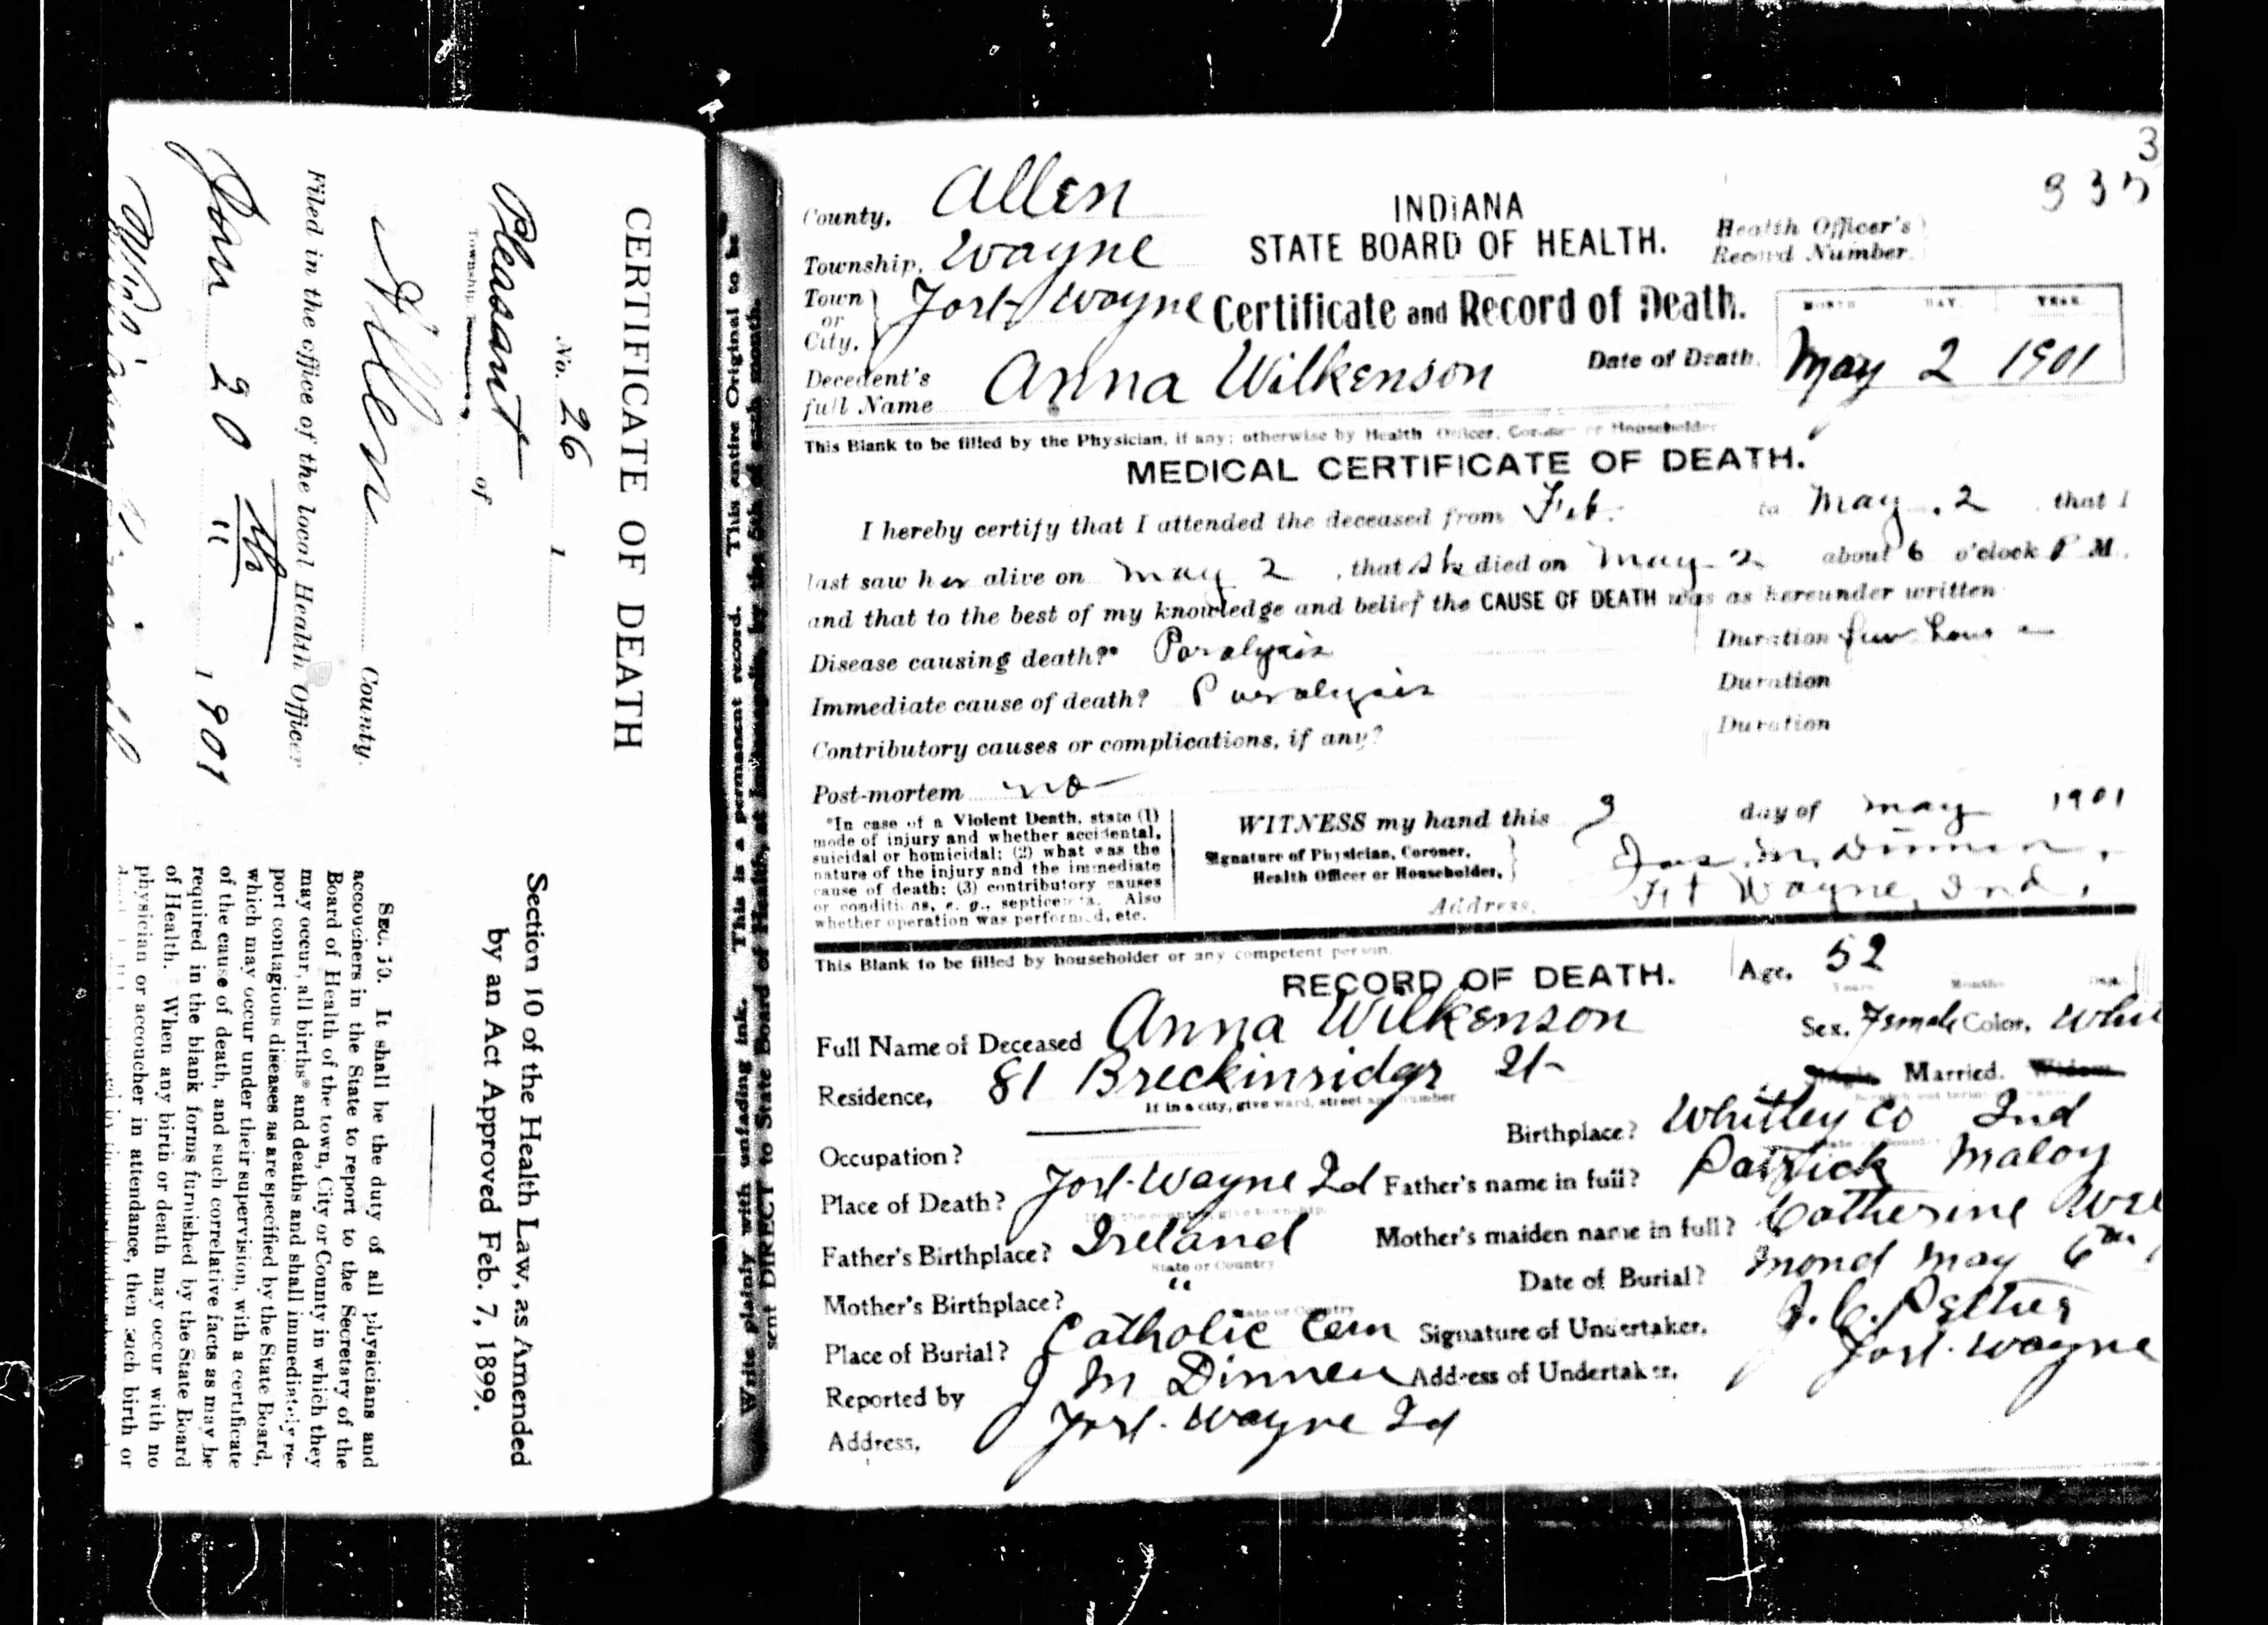 CERTIFICATE OF DEATH
No. 26 1
Pleasant
Township, Town, of
Allen County.
Filed in the office of the local Health Officer
Jan 20 th 1901
Section 10 of the Health Law, as Amended
by an Act Approved Feb. 7, 1899.
SEC. 10. It shall be the duty of all physicians and
accouchers in the State to report to the Secretary of the
Board of Health of the town, City or County in which they
may occur, all births* and deaths and shall immediately re-
port contagious diseases as are specified by the State Board,
which may occur under their supervision, with a certificate
of the cause of death, and such correlative facts as may be
required in the blank forms furnished by the State Board
of Health. When any birth or death may occur with no
physician or accoucher in attendance, then such birth or
Write plainly with unfading ink. This is a permanent record. This entire Original to be
sent DIRECT to State Board of Health, at Indianapolis, by the 5th of each month.
3
337
County, Allen
INDIANA
STATE BOARD OF HEALTH.
Health Officer's
Record Number.
Township, Wayne
Town or City, Fort Wayne
Certificate and Record of Death.
MONTH DAY YEAR
Decedent's full Name Anna Wilkenson
Date of Death. May 2 1901
This Blank to be filled by the Physician, if any; otherwise by Health Officer, Coroner or Householder
MEDICAL CERTIFICATE OF DEATH.
I hereby certify that I attended the deceased from Feb. to May. 2 that I
last saw her alive on May 2, that she died on May 2 about 6 o'clock P M.
and that to the best of my knowledge and belief the CAUSE OF DEATH was as hereunder written
Disease causing death?* Paralysis Duration few hours
Immediate cause of death? Paralysis Duration
Contributory causes or complications, if any? Duration
Post-mortem no
*In case of a Violent Death, state (1)
mode of injury and whether accidental,
suicidal or homicidal; (2) what was the
nature of the injury and the immediate
cause of death; (3) contributory causes
or conditions, e. g., septicemia. Also
whether operation was performed, etc.
WITNESS my hand this 3 day of May 1901
Signature of Physician, Coroner,
Health Officer or Householder, Jas. M. Dinnen,
Address, Ft Wayne, Ind.
This Blank to be filled by householder or any competent person.
RECORD OF DEATH.
Age, 52
Years Months Days
Full Name of Deceased Anna Wilkenson
Sex, Female Color, Whit
Residence, 81 Breckinridge St
If in a city, give ward, street and number
Single Married. Widow
Occupation?
Birthplace? Whitley Co Ind
Place of Death? Fort Wayne Id
Father's name in full? Patrick Maloy
Father's Birthplace? Ireland
State or Country
Mother's maiden name in full? Catherine
Mother's Birthplace? "
State or Country
Date of Burial? Mond May 6th
Place of Burial? Catholic Cem
Signature of Undertaker,
Reported by J M Dinnen
Address of Undertaker, Fort Wayne
Address, Fort Wayne Id